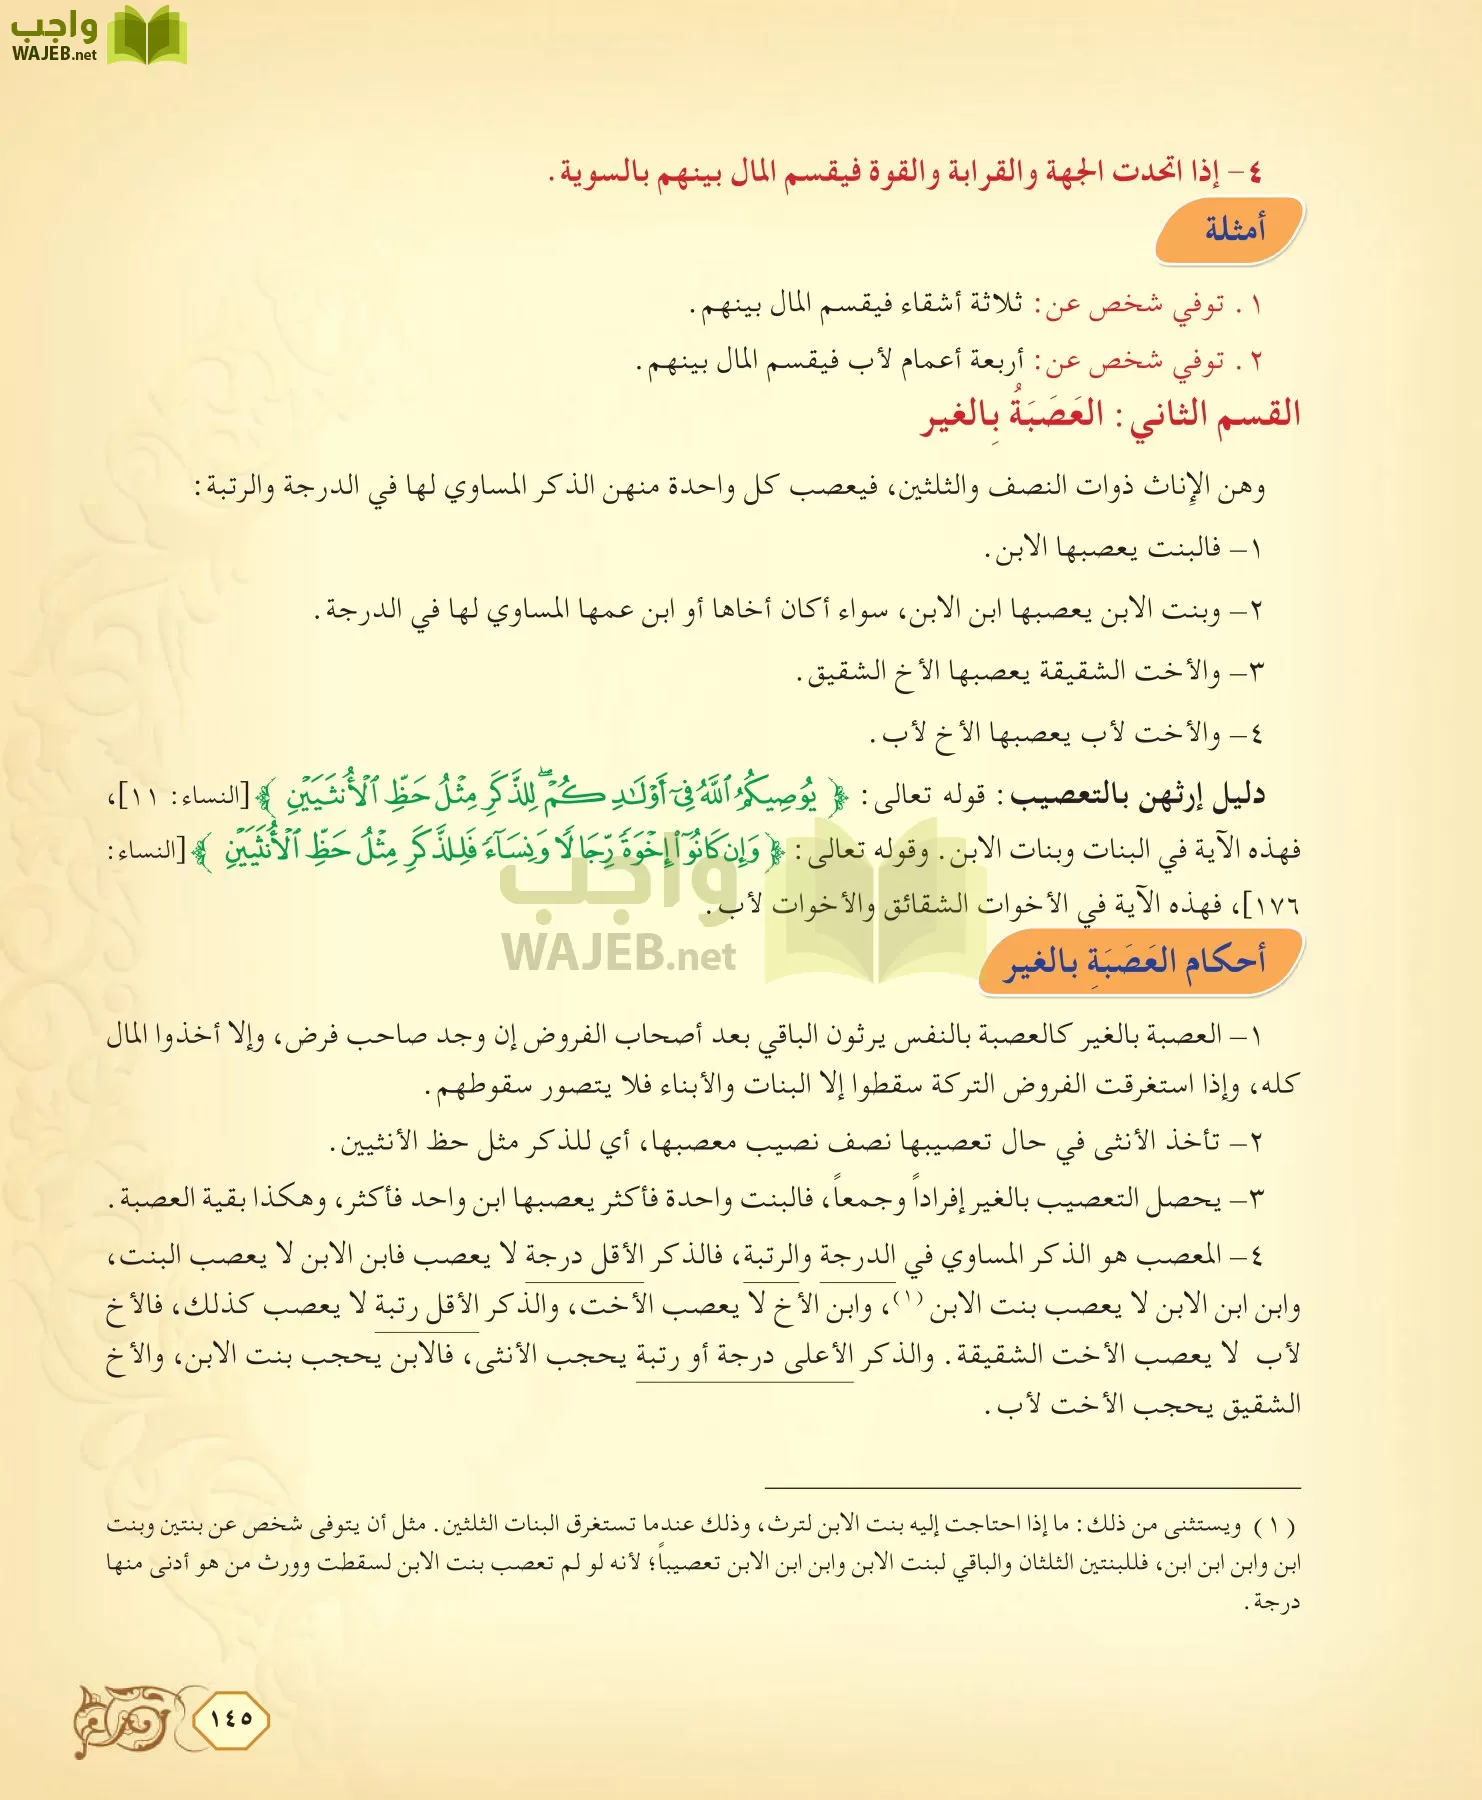 واجب
WAJEB.net
٤- إذا اتحدت الجهة والقرابة والقوة فيقسم المال بينهم بالسوية.
أمثلة
١. توفي شخص عن: ثلاثة أشقاء فيقسم المال بينهم.
٢. توفي شخص عن: أربعة أعمام لأب فيقسم المال بينهم.
القسم الثاني: العَصَبَةُ بِالغير
وهن الإناث ذوات النصف والثلثين، فيعصب كل واحدة منهن الذكر المساوي لها في الدرجة والرتبة:
١- فالبنت يعصبها الابن.
٢- وبنت الابن يعصبها ابن الابن، سواء أكان أخاها أو ابن عمها المساوي لها في الدرجة.
٣- والأخت الشقيقة يعصبها الأخ الشقيق.
٤- والأخت لأب يعصبها الأخ لأب.
دليل إرثهن بالتعصيب: قوله تعالى: ﴿ يُوصِيكُمُ ٱللَّهُ فِىٓ أَوْلَـٰدِكُمْ ۖ لِلذَّكَرِ مِثْلُ حَظِّ ٱلْأُنثَيَيْنِ ﴾[النساء: ١١]،
فهذه الآية في البنات وبنات الابن. وقوله تعالى: ﴿ وَإِن كَانُوٓا۟ إِخْوَةً رِّجَالًا وَنِسَآءً فَلِلذَّكَرِ مِثْلُ حَظِّ ٱلْأُنثَيَيْنِ ﴾[النساء:
١٧٦]، فهذه الآية في الأخوات الشقائق والأخوات لأب.
واجب
WAJEB.net
أحكام العَصَبَةِ بالغير
١- العصبة بالغير كالعصبة بالنفس يرثون الباقي بعد أصحاب الفروض إن وجد صاحب فرض، وإلا أخذوا المال
كله، وإذا استغرقت الفروض التركة سقطوا إلا البنات والأبناء فلا يتصور سقوطهم.
٢- تأخذ الأنثى في حال تعصيبها نصف نصيب معصبها، أي للذكر مثل حظ الأنثيين.
٣- يحصل التعصيب بالغير إفراداً وجمعاً، فالبنت واحدة فأكثر يعصبها ابن واحد فأكثر، وهكذا بقية العصبة.
٤- المعصب هو الذكر المساوي في الدرجة والرتبة، فالذكر الأقل درجة لا يعصب فابن الابن لا يعصب البنت،
وابن ابن الابن لا يعصب بنت الابن (١)، وابن الأخ لا يعصب الأخت، والذكر الأقل رتبة لا يعصب كذلك، فالأخ
لأب لا يعصب الأخت الشقيقة. والذكر الأعلى درجة أو رتبة يحجب الأنثى، فالابن يحجب بنت الابن، والأخ
الشقيق يحجب الأخت لأب.
(١) ويستثنى من ذلك: ما إذا احتاجت إليه بنت الابن لترث، وذلك عندما تستغرق البنات الثلثين. مثل أن يتوفى شخص عن بنتين وبنت
ابن وابن ابن ابن، فللبنتين الثلثان والباقي لبنت الابن وابن ابن الابن تعصيباً؛ لأنه لو لم تعصب بنت الابن لسقطت وورث من هو أدنى منها
درجة.
١٤٥